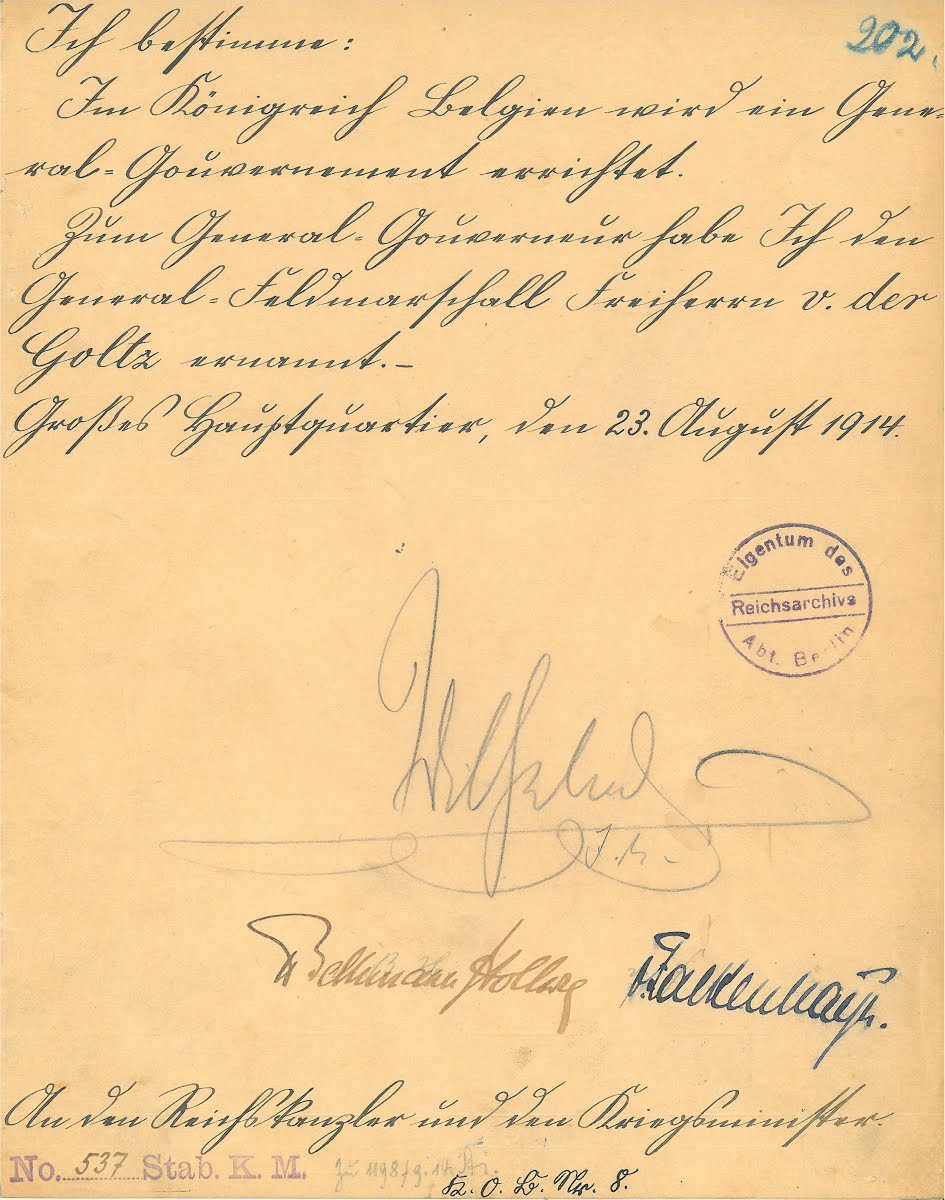 202.
Ich bestimme:
Im Königreich Belgien wird ein Gene-
ral-Gouvernement errichtet.
Zum General-Gouverneur habe Ich den
General-Feldmarschall Freiherrn v. der
Goltz ernannt.-
Großes Hauptquartier, den 23. August 1914.
Eigentum des
Reichsarchivs
Abt. Berlin
Wilhelm
I.R.
Bethmann Hollweg
v. Falkenhayn.
An den Reichskanzler und den Kriegsminister.
No. 537 Stab. K. M.
zu 1198/9. 14
K. O. B. Nr. 8.